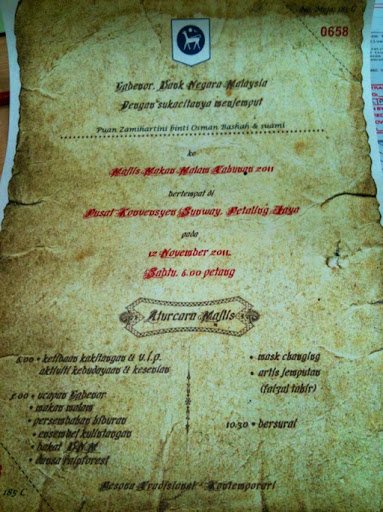 0658
Gabenor, Bank Negara Malaysia
Dengan sukacitanya menjemput
Puan Zamihartini binti Osman Bashah & suami
ke
Majlis Makan Malam Tahunan 2011
bertempat di
Pusat Konvensyen Sunway, Petaling Jaya
pada
12 November 2011.
Sabtu, 6.00 petang
Aturcara Majlis
6.00 • ketibaan kakitangan & v.i.p.
aktiviti kebudayaan & kesenian
8.00 • ucapan Gabenor
• makan malam
• persembahan hiburan
• ensembel kulintangan
• bakat BNM
• dansa rainforest
• mask changing
• artis jemputan
(faizal tahir)
10.30 • bersurai
Busana Tradisional / Kontemporari
185 C